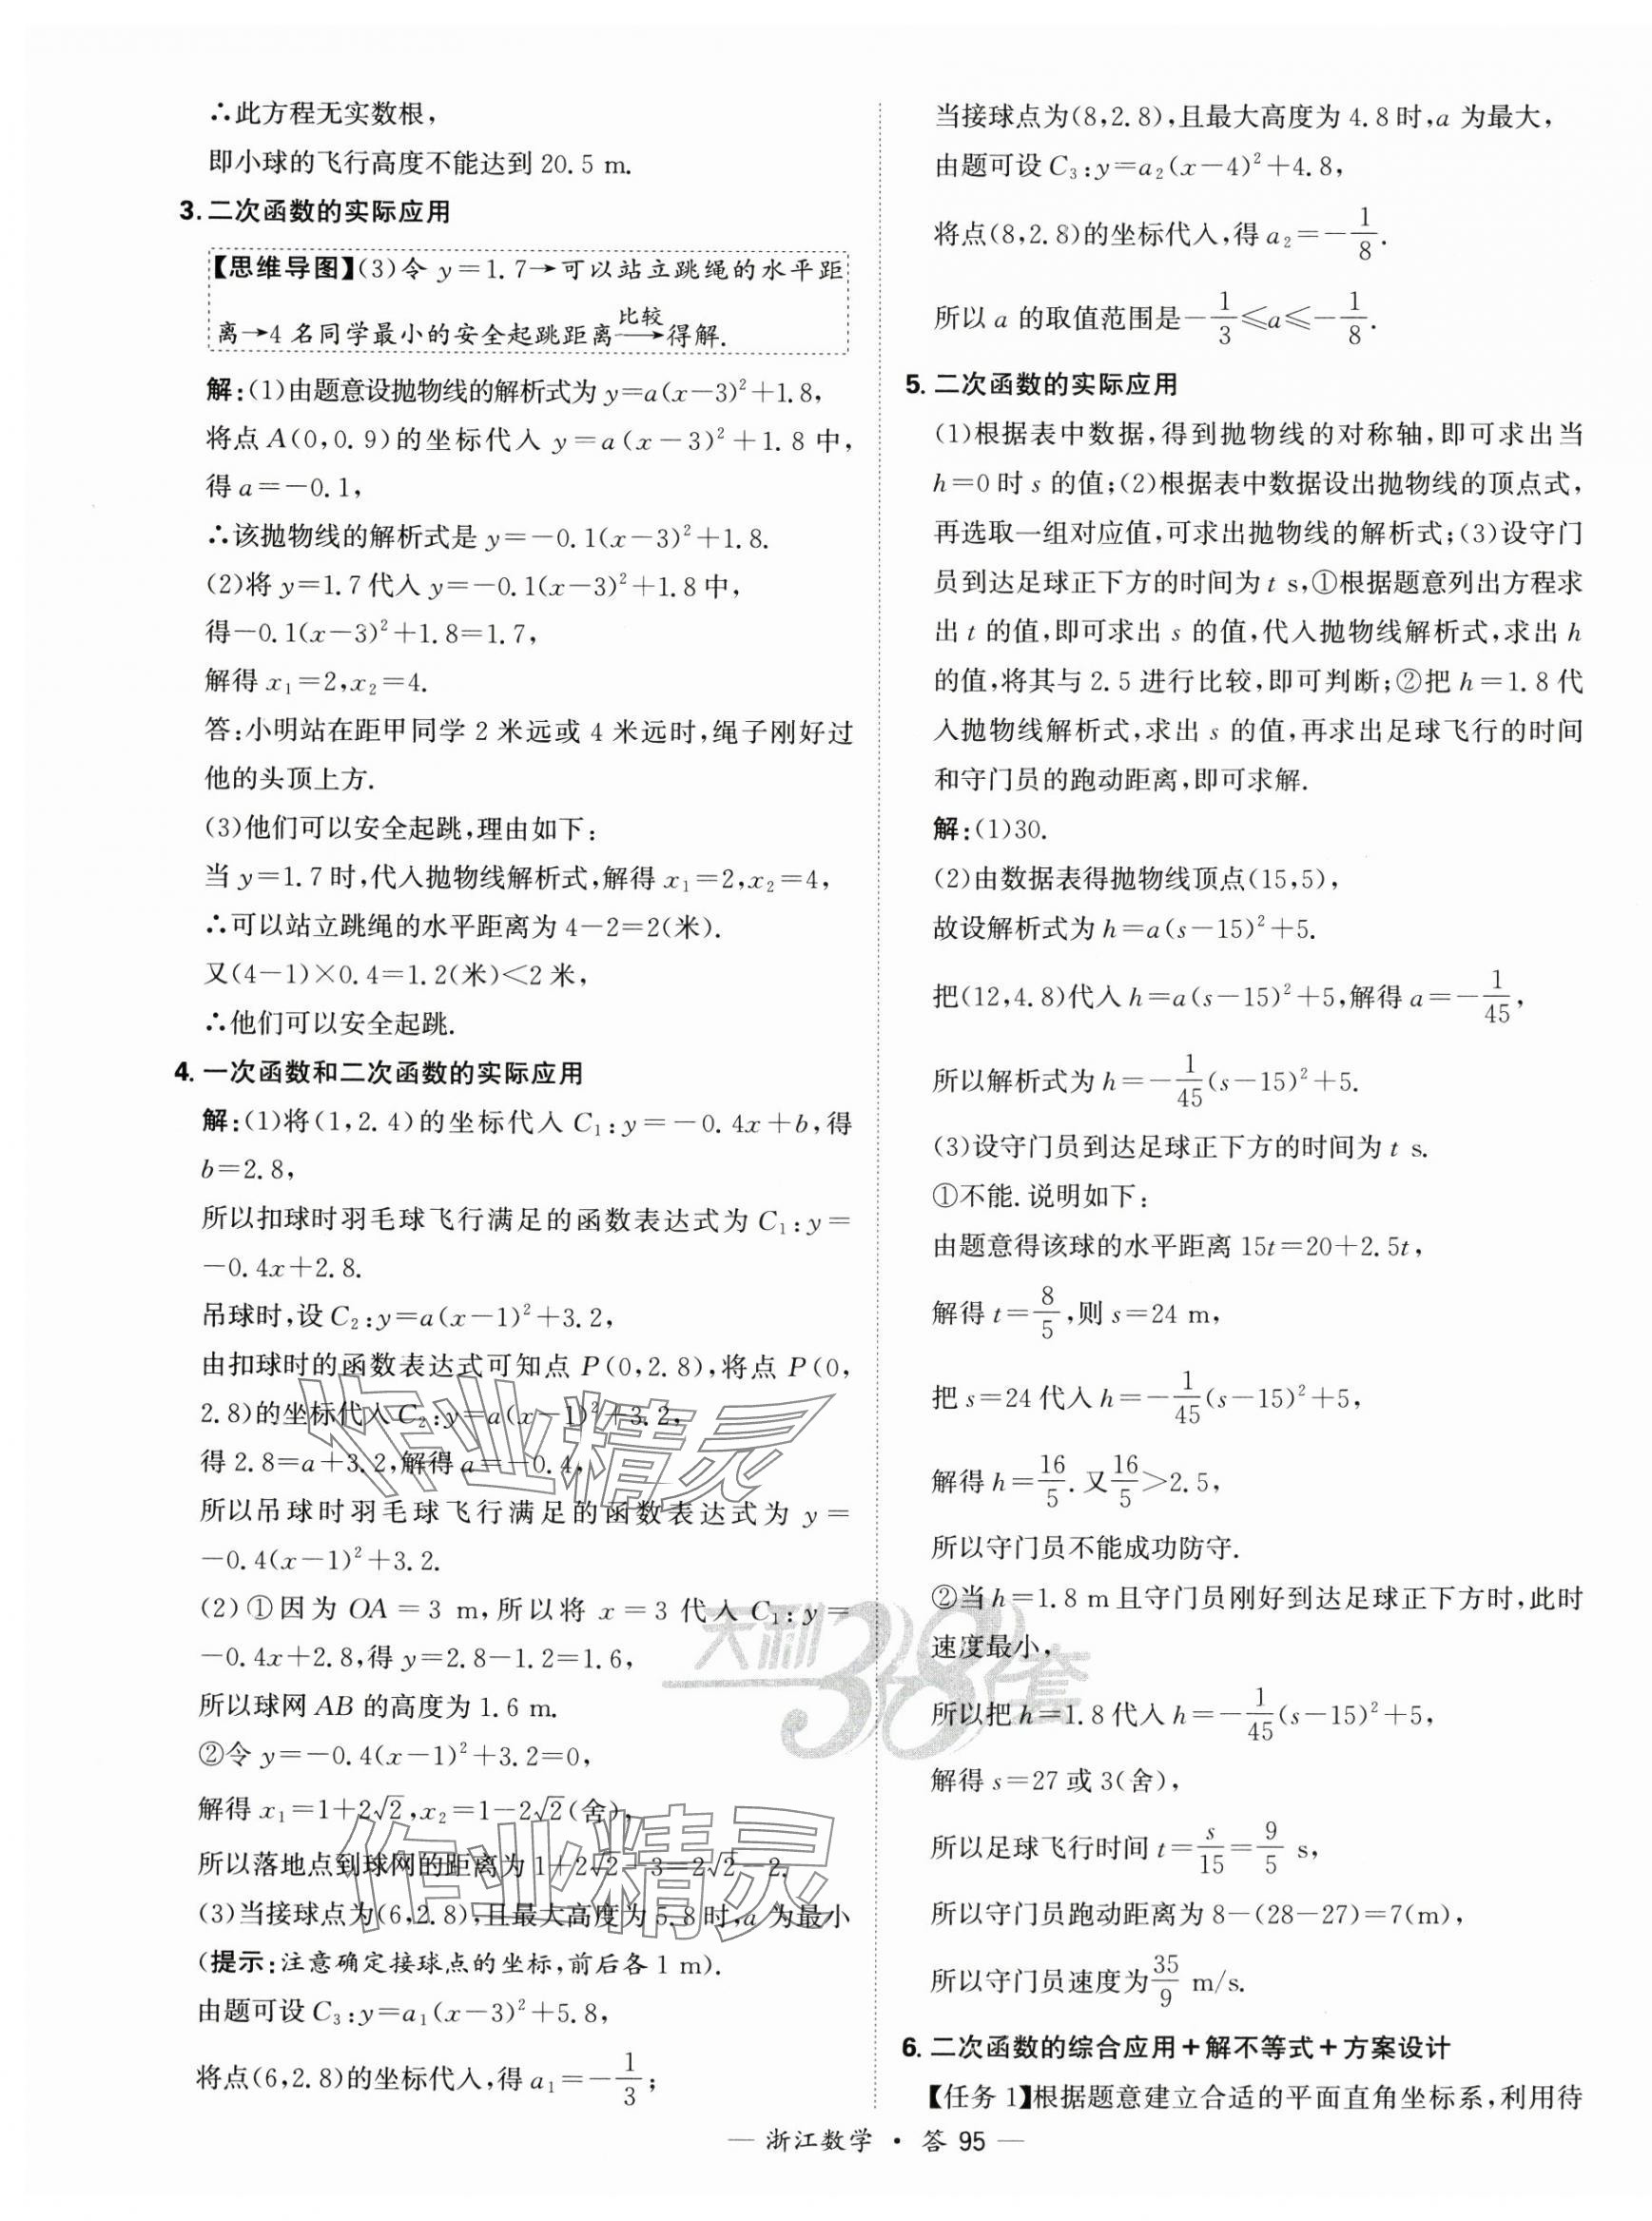 ∴此方程无实数根,
即小球的飞行高度不能达到 20.5 m.
3. 二次函数的实际应用
【思维导图】(3)令 y=1.7→可以站立跳绳的水平距
离→4 名同学最小的安全起跳距离 比较→得解.
解:(1)由题意设抛物线的解析式为 y=a(x-3)²+1.8,
将点 A(0,0.9)的坐标代入 y=a(x-3)²+1.8 中,
得 a=-0.1,
∴该抛物线的解析式是 y=-0.1(x-3)²+1.8.
(2)将 y=1.7 代入 y=-0.1(x-3)²+1.8 中,
得-0.1(x-3)²+1.8=1.7,
解得 x₁=2,x₂=4.
答:小明站在距甲同学 2 米远或 4 米远时,绳子刚好过
他的头顶上方.
(3)他们可以安全起跳,理由如下:
当 y=1.7 时,代入抛物线解析式,解得 x₁=2,x₂=4,
∴可以站立跳绳的水平距离为 4-2=2(米).
又(4-1)×0.4=1.2(米)<2 米,
∴他们可以安全起跳.
4. 一次函数和二次函数的实际应用
解:(1)将(1,2.4)的坐标代入 C₁:y=-0.4x+b,得
b=2.8,
所以扣球时羽毛球飞行满足的函数表达式为 C₁:y=
-0.4x+2.8.
吊球时,设 C₂:y=a(x-1)²+3.2,
由扣球时的函数表达式可知点 P(0,2.8),将点 P(0,
2.8)的坐标代入 C₂:y=a(x-1)²+3.2,
得 2.8=a+3.2,解得 a=-0.4,
所以吊球时羽毛球飞行满足的函数表达式为 y=
-0.4(x-1)²+3.2.
(2)①因为 OA=3 m,所以将 x=3 代入 C₁:y=
-0.4x+2.8,得 y=2.8-1.2=1.6,
所以球网 AB 的高度为 1.6 m.
②令 y=-0.4(x-1)²+3.2=0,
解得 x₁=1+2√2,x₂=1-2√2(舍),
所以落地点到球网的距离为 1+2√2-3=2√2-2.
(3)当接球点为(6,2.8),且最大高度为 5.8 时,a 为最小
(提示:注意确定接球点的坐标,前后各 1 m).
由题可设 C₃:y=a₁(x-3)²+5.8,
将点(6,2.8)的坐标代入,得 a₁=-1/3;
当接球点为(8,2.8),且最大高度为 4.8 时,a 为最大,
由题可设 C₃:y=a₂(x-4)²+4.8,
将点(8,2.8)的坐标代入,得 a₂=-1/8.
所以 a 的取值范围是-1/3≤a≤-1/8.
5. 二次函数的实际应用
(1)根据表中数据,得到抛物线的对称轴,即可求出当
h=0 时 s 的值;(2)根据表中数据设出抛物线的顶点式,
再选取一组对应值,可求出抛物线的解析式;(3)设守门
员到达足球正下方的时间为 t s,①根据题意列出方程求
出 t 的值,即可求出 s 的值,代入抛物线解析式,求出 h
的值,将其与 2.5 进行比较,即可判断;②把 h=1.8 代
入抛物线解析式,求出 s 的值,再求出足球飞行的时间
和守门员的跑动距离,即可求解.
解:(1)30.
(2)由数据表得抛物线顶点(15,5),
故设解析式为 h=a(s-15)²+5.
把(12,4.8)代入 h=a(s-15)²+5,解得 a=-1/45,
所以解析式为 h=-1/45(s-15)²+5.
(3)设守门员到达足球正下方的时间为 t s.
①不能.说明如下:
由题意得该球的水平距离 15t=20+2.5t,
解得 t=8/5,则 s=24 m,
把 s=24 代入 h=-1/45(s-15)²+5,
解得 h=16/5.又16/5>2.5,
所以守门员不能成功防守.
②当 h=1.8 m 且守门员刚好到达足球正下方时,此时
速度最小,
所以把 h=1.8 代入 h=-1/45(s-15)²+5,
解得 s=27 或 3(舍),
所以足球飞行时间 t=s/15=9/5 s,
所以守门员跑动距离为 8-(28-27)=7(m),
所以守门员速度为35/9 m/s.
6. 二次函数的综合应用+解不等式+方案设计
【任务 1】根据题意建立合适的平面直角坐标系,利用待
— 浙江数学 · 答 95 —
作业精灵
天利38套
作业精灵